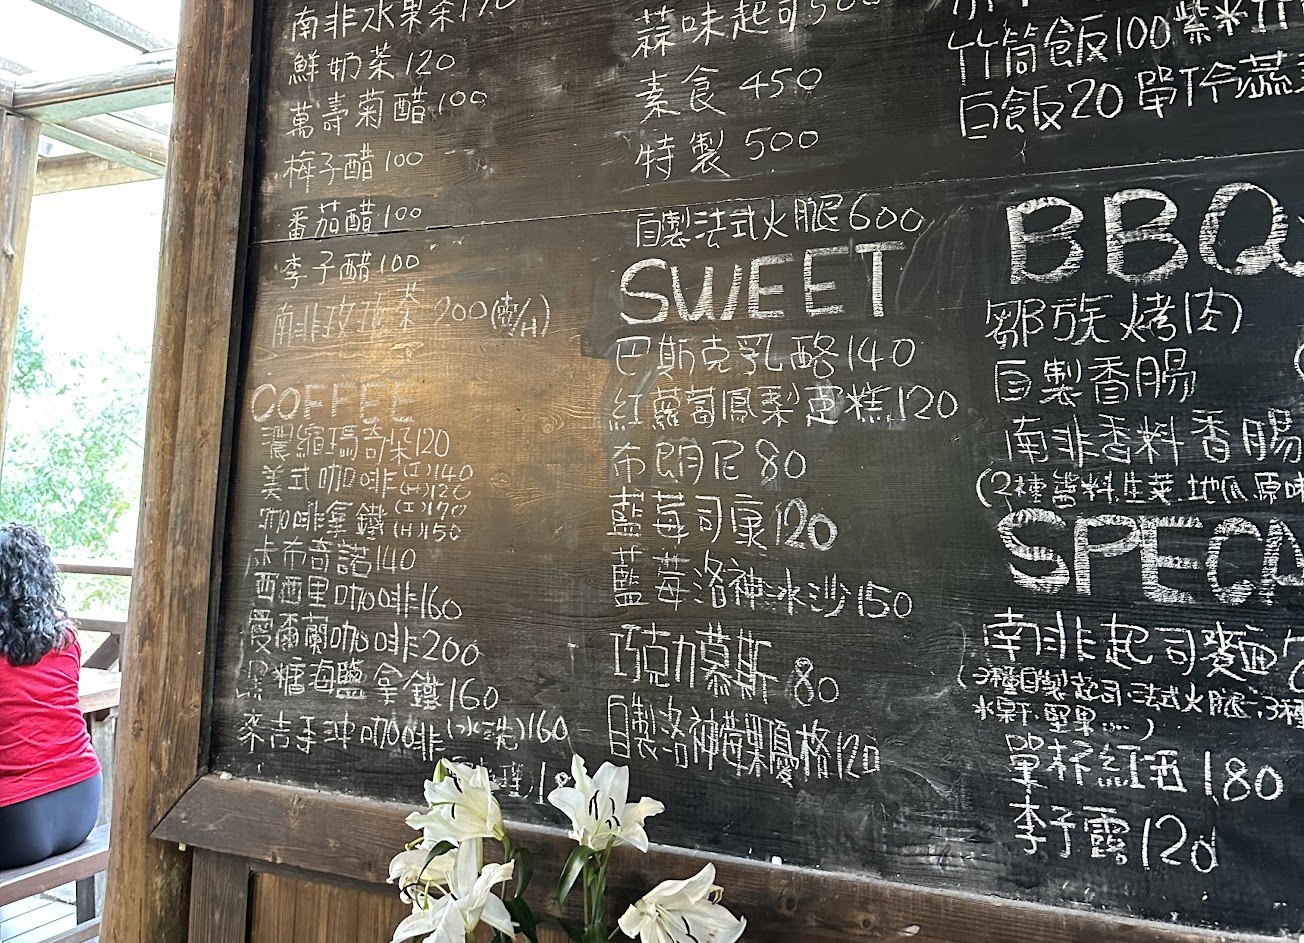 南非水果茶170
鮮奶茶120
萬壽菊醋100
梅子醋100
番茄醋100
李子醋100
南非玫瑰茶 200(壺/H)
COFFEE
濃縮瑪奇朵120
美式咖啡(I)140
(H)120
咖啡拿鐵(I)170
(H)150
卡布奇諾140
西西里咖啡160
曼爾蘭咖啡200
黑糖海鹽拿鐵160
來吉手沖咖啡(水洗)160
蒜味起司500
素食450
特製500
自製法式火腿600
SWEET
巴斯克乳酪140
紅蘿蔔鳳梨蛋糕120
布朗尼80
藍莓司康120
藍莓洛神冰沙150
巧克力慕斯80
自製洛神莓果優格120
竹筒飯100紫米
白飯20單
BBQ
鄒族烤肉
自製香腸
南非香料香腸
(2種醬料.生菜.地瓜.原味
SPECA
南非起司麵
(3種自製起司.法式火腿.3種
水果干.堅果...)
單杯紅酒180
李子露120